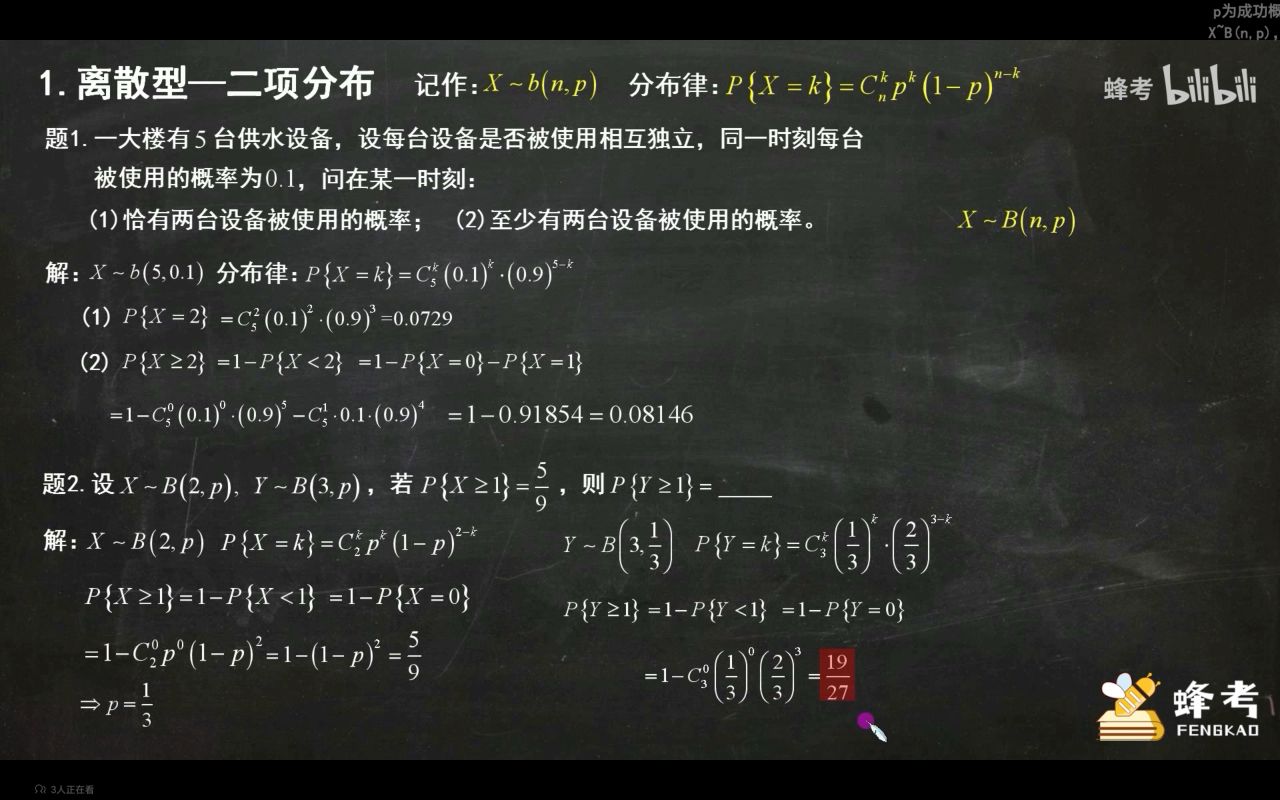 p为成功概
X~B(n,p),
1.离散型—二项分布 记作:X ~ b(n,p) 分布律:P{X = k} = C_n^k p^k (1 − p)^{n−k}
蜂考 bilibili
题1.一大楼有5台供水设备，设每台设备是否被使用相互独立，同一时刻每台
被使用的概率为0.1，问在某一时刻:
(1)恰有两台设备被使用的概率； (2)至少有两台设备被使用的概率。
X ~ B(n,p)
解:X ~ b(5,0.1) 分布律:P{X = k} = C_5^k (0.1)^k ·(0.9)^{5−k}
(1) P{X = 2} = C_5^2 (0.1)^2 ·(0.9)^3 =0.0729
(2) P{X ≥ 2} =1−P{X < 2} =1−P{X = 0}−P{X =1}
=1−C_5^0 (0.1)^0 ·(0.9)^5 −C_5^1 ·0.1·(0.9)^4 =1−0.91854 = 0.08146
题2.设 X ~ B(2,p), Y ~ B(3,p)，若 P{X ≥1} = 5/9，则 P{Y ≥1} = ____
解:X ~ B(2,p) P{X = k} = C_2^k p^k (1 − p)^{2−k}
P{X ≥1} =1−P{X <1} =1−P{X = 0}
=1−C_2^0 p^0 (1 − p)^2 =1−(1 − p)^2 = 5/9
⇒ p = 1/3
Y ~ B(3, 1/3) P{Y = k} = C_3^k (1/3)^k ·(2/3)^{3−k}
P{Y ≥1} =1−P{Y <1} =1−P{Y = 0}
=1−C_3^0 (1/3)^0 (2/3)^3 = 19/27
蜂考
FENGKAO
3人正在看